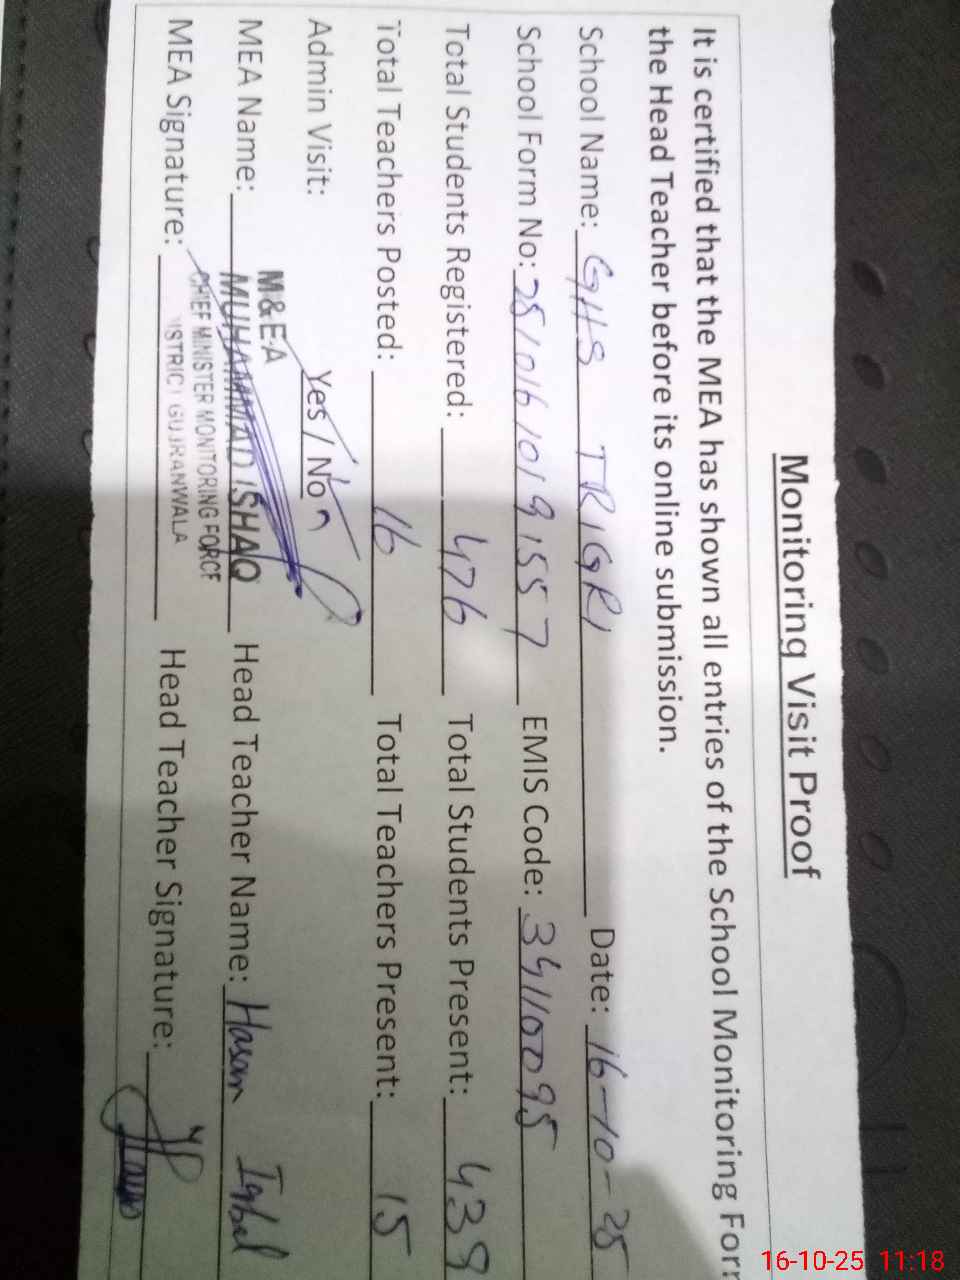 Monitoring Visit Proof
It is certified that the MEA has shown all entries of the School Monitoring Form
the Head Teacher before its online submission.
School Name: GHS TRIGRI Date: 16-10-25
School Form No: 2510161019557 EMIS Code: 34110095
Total Students Registered: 476 Total Students Present: 439
Total Teachers Posted: 16 Total Teachers Present: 15
Admin Visit: Yes / No
M & E A
MEA Name: MUHAMMAD ISHAQ Head Teacher Name: Hasan Iqbal
CHIEF MINISTER MONITORING FORCE
MEA Signature: Head Teacher Signature:
DISTRICT GUJRANWALA
16-10-25 11:18